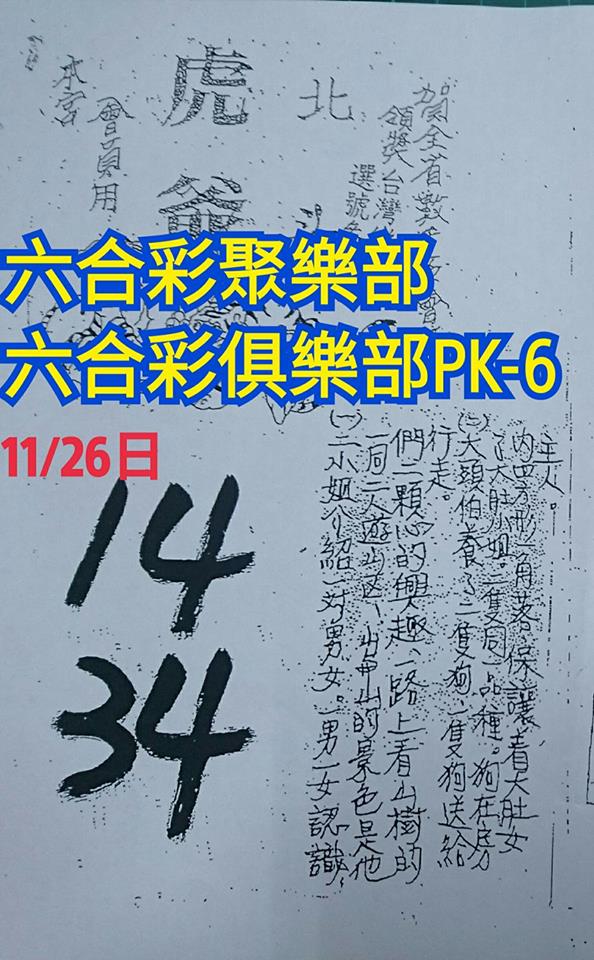 賀全省數
領獎台灣
選號
北
虎
爺
本宮
會員用
六合彩聚樂部
六合彩俱樂部PK-6
11/26日
14
34
(一)二小姐介紹一對男女。一男一女認識,
一同二人遊山区、出甲山的景色是他
們二顆心的興趣、一路上看山樹的
行走。
(二)大頭伯養了二隻狗,一隻狗送給
了大肚小姐。二隻同一品種。狗在房
內四方形一角落,保護着大肚女
主人。